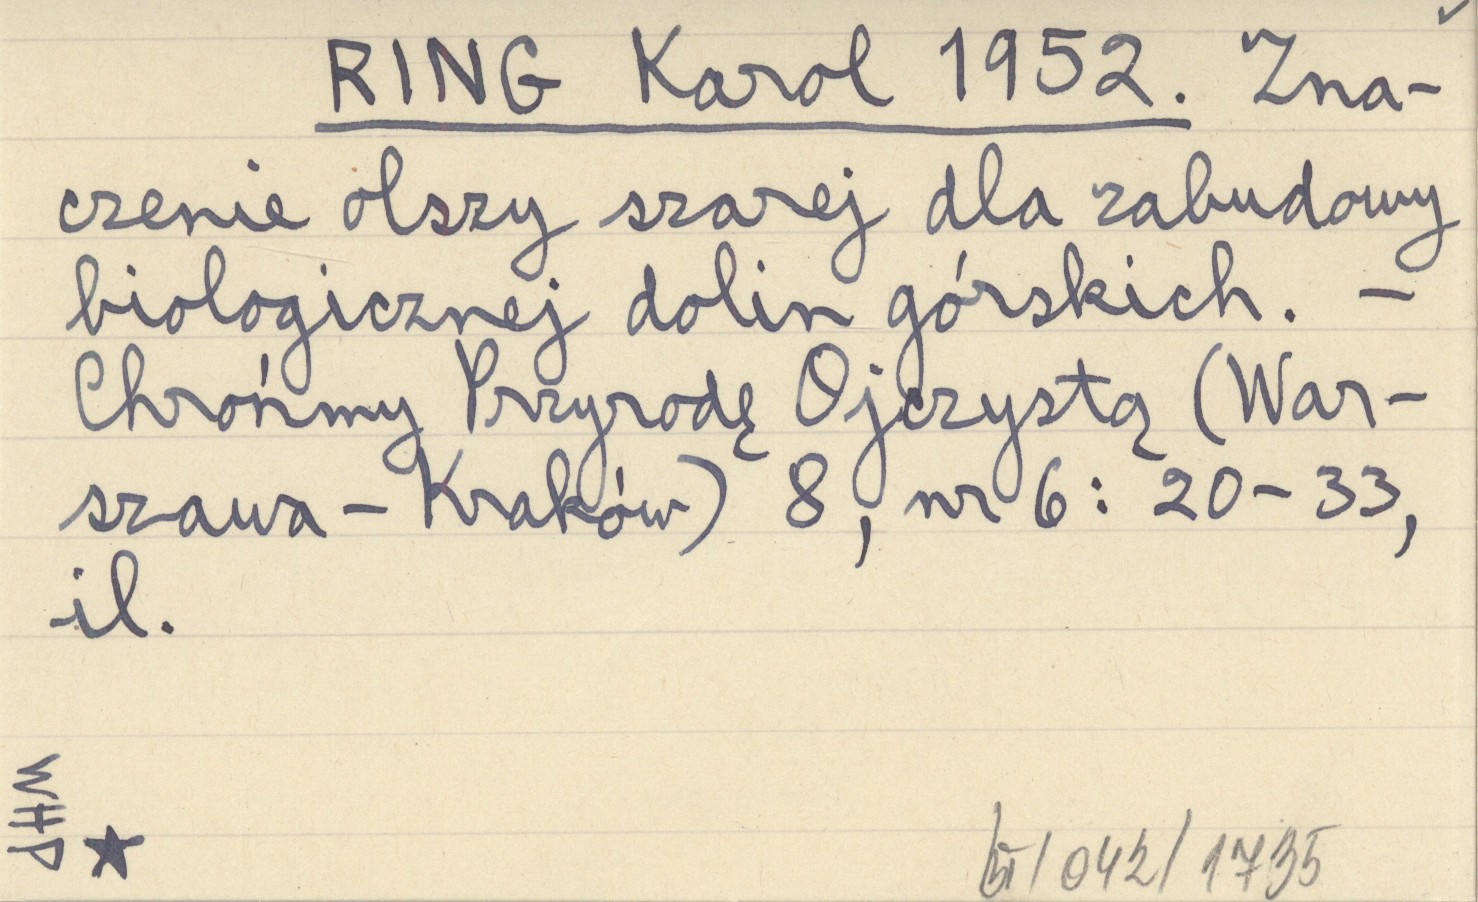 RING Karol 1952. Zna-
czenie olszy szarej dla zabudowy
biologicznej dolin górskich. –
Chrońmy Przyrodę Ojczystą (War-
szawa – Kraków) 8, nr 6: 20–33,
il.
WHP
/042/1735